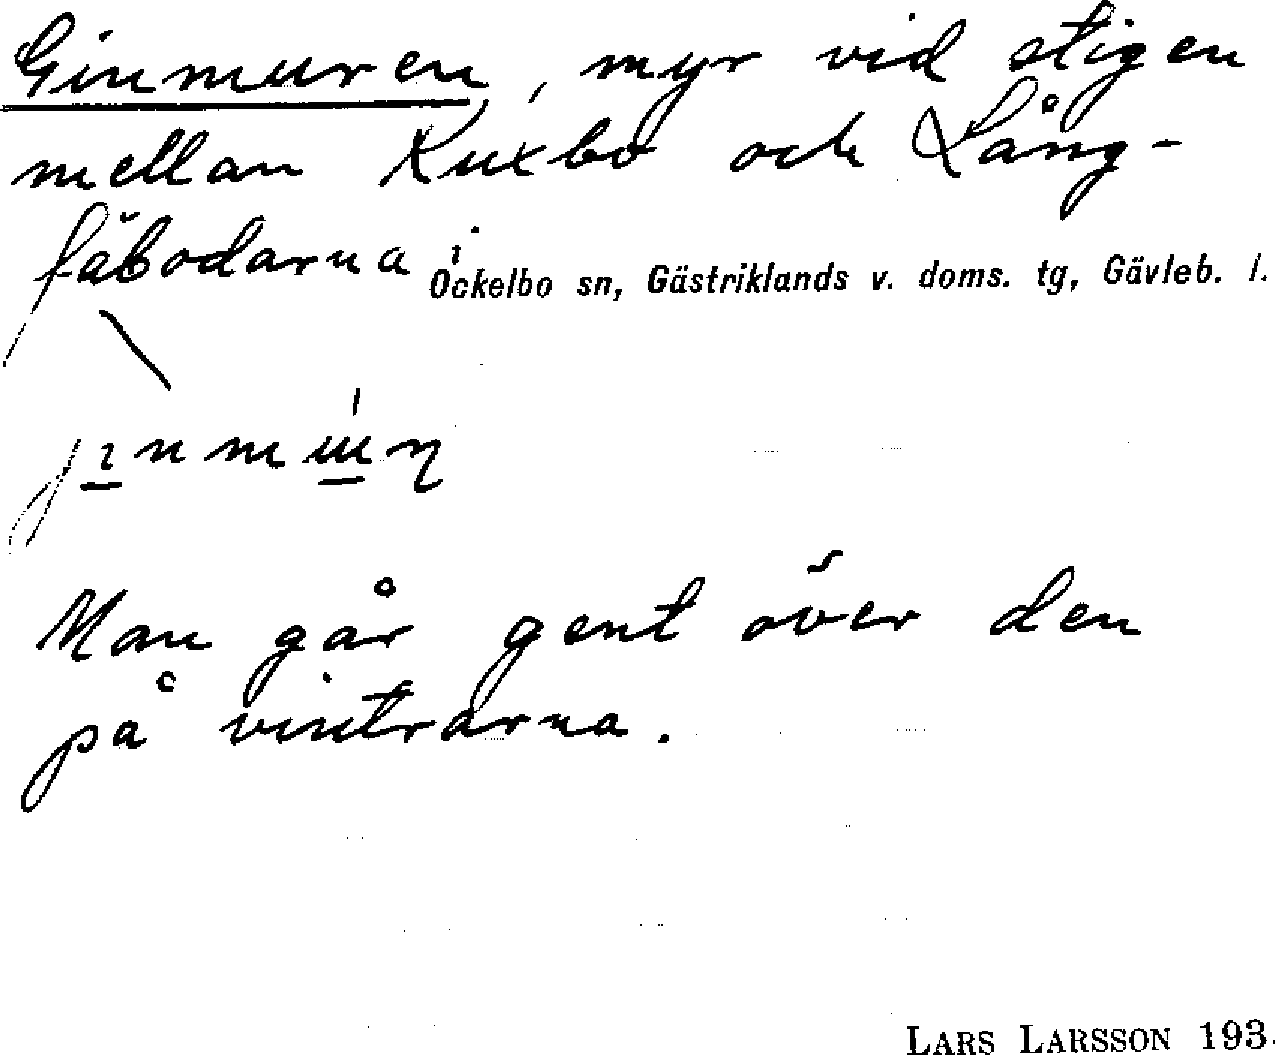 Ginmuren, myr vid stigen
mellan Kuxbo och Lång-
fäbodarna i Ockelbo sn, Gästriklands v. doms. tg, Gävleb. l.
Man går gent över den
på vintrarna.
LARS LARSSON 193